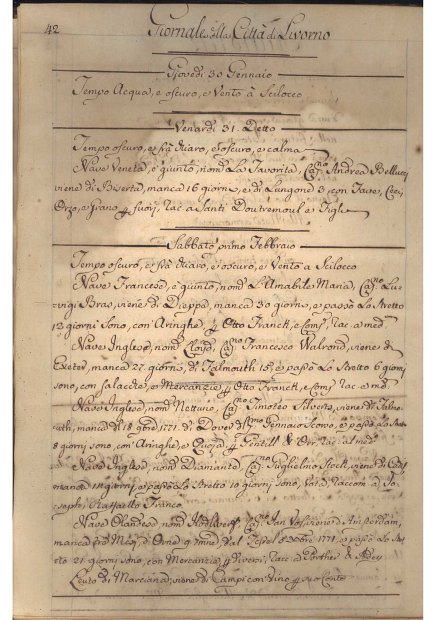 42
Giornale della Città di Livorno
Giovedì 30 Gennaio
Tempo Acqua, e oscuro, e Vento à Scilocco
Venardì 31. Detto
Tempo oscuro, e frà chiaro, e oscuro, e calma
Nave Veneta, è giunto, nomᵃ La Favorita, Capⁿᵒ Andrea Bellucci
viene di Biserta, manca 16 giorni, e di Longone 3, con Fave, Ceci
Orzo, e Grano per fuori, rac. a Santi Doutremoul e Figli
Sabbato primo Febbraio
Tempo oscuro, e frà chiaro, e oscuro, e Vento a Scilocco
Nave Francese, è giunto, nomᵃ L'Amabile Maria, Capⁿᵒ Lui
viene di Dieppa, manca 30 giorni, e passò lo Stretto
13 giorni sono, con Aringhe, per Otto Franck, e Compⁱ, rac. a medⁱ
Nave Inglese, nomᵃ Capⁿᵒ Francesco Walrond, viene di
Exeter, manca 27 giorni, di Falmouth 15, e passò lo Stretto 6 giorni
sono, con Salacche, e Mercanzie per Otto Franck, e Compⁱ rac. a medⁱ
Nave Inglese, nomᵃ Nettuno, Capⁿᵒ Timoteo Silvens, viene di Falmouth
manca di 18 1771. di Gennaio scorso, e passò lo Stretto
8 giorni sono, con Aringhe, e per Gentill & Orr, rac. al medⁱ
Nave Inglese, nomᵃ Diamante, Capⁿᵒ Guglielmo viene di
manca 14 giorni, e passò lo Stretto 10 giorni, raccom. a
Raffaello Franco
Nave Olandese nomᵃ Capⁿᵒ Jan viene di Amsterdam,
manca del Texel 1771. e passò lo Stretto
21 giorni sono, con Mercanzie per Diversi, rac. a Porther & Adey
Leuto di Marciana, viene di Campi con Vino per suo Conto